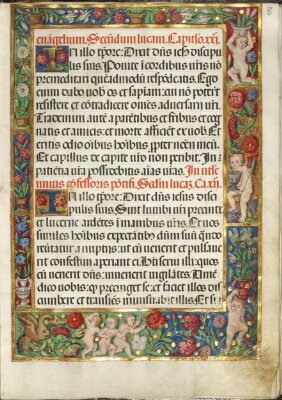 euangelium. Secundum lucam. Capitulo .xxi.
In illo tpore: Dixit dns ihs discipu
lis suis. Ponite i cordibus vris no
premeditari queadmodu respodeatis. Ego
enim dabo uob os et sapiam: cui no poterut
resistere et cotradicere omes aduersarii vri.
Trademini aute a paretibus et fribus et cog
natis et amicis: et morte afficiet ex uob. Et
eritis odio oibus hoibus, propter nomen meu.
Et capillus de capite vro non peribit. In
patietia vra possidebitis aias vras. In
unius confessoris pontif. Scdm lucaz. Ca. xii.
In illo tpore: Dixit dns iesus disci
pulis suis. Sint lumbi vri precincti
et lucerne ardetes i manibus vris. Et uos
similes hoibus expectatibus dnm suu: qn co
reuertatur a nuptiis: ut cu uenerit et pulsaue
rit confestim aperiant ei. Bti serui illi: quos
cu uenerit dns: inuenerit vigilates. Amen
dico uobis: q precinget se: et faciet illos dis
cumbere et transies ministrabit illis. Et si